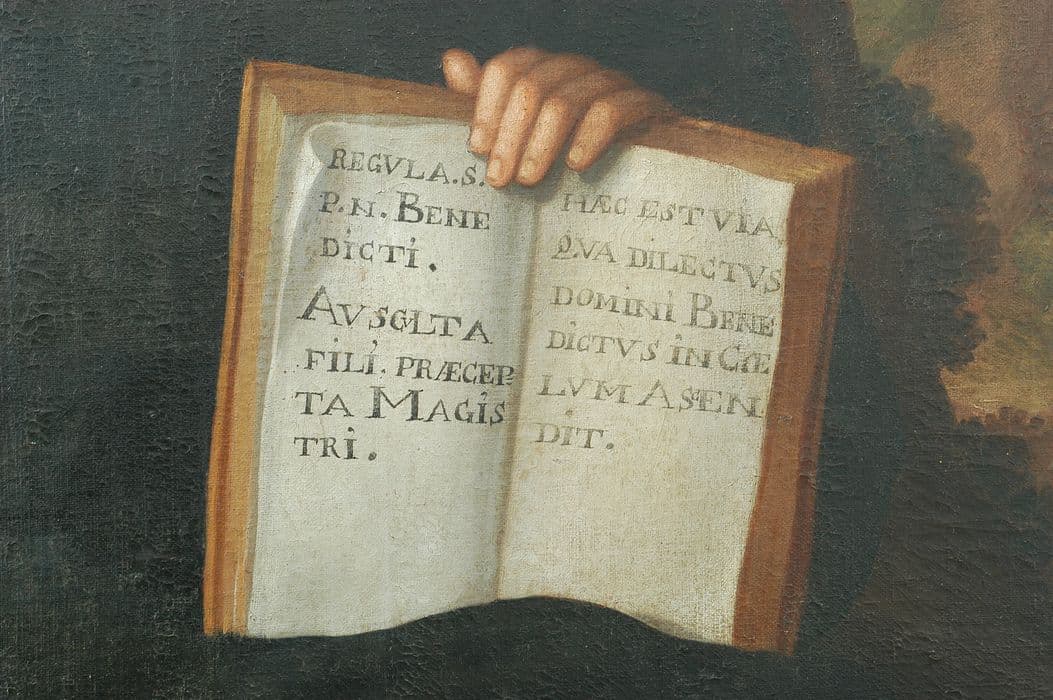 REGVLA.S.
P.N. BENE
DICTI.
AVSCVLTA
FILI. PRÆCEP=
TA MAGIS
TRI.
HÆC EST VIA
QVA DILECTVS
DOMINI BENE
DICTVS IN CŒ
LVM ASEN
DIT.